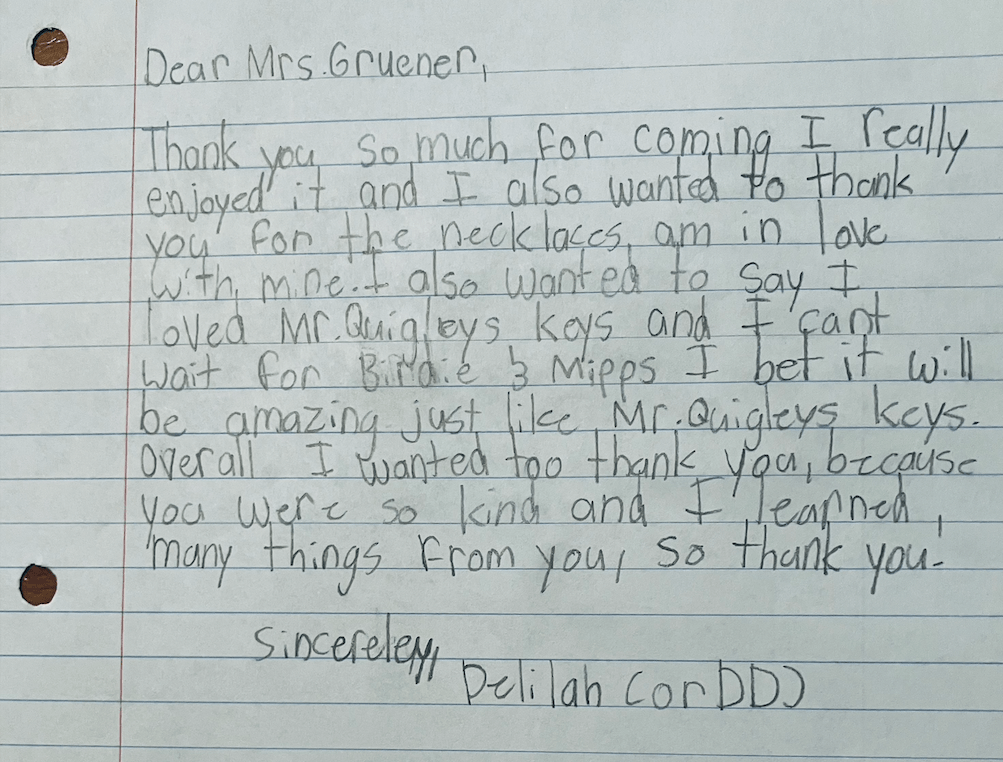 Dear Mrs. Gruener,
Thank you so much for coming I really
enjoyed it and I also wanted to thank
you for the necklaces, am in love
with mine. I also wanted to say I
loved Mr. Quigleys keys and I cant
wait for Birdie & Mipps I bet it will
be amazing just like Mr. Quigleys keys.
Overall I wanted too thank you, because
you were so kind and I learned,
many things from you, so thank you.
Sincereley,
Delilah (or DD)